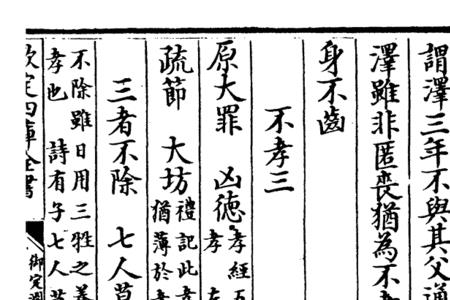 謂澤三年不與其父通
澤雖非匿喪猶為不
身不齒
不孝三
原大罪 凶德 孝經五
孝
疏節 大坊 禮記此
猶薄於孝
三者不除 七人莫
不除雖日用三牲之養
孝也 詩有子七人莫
欽定四庫全書
御定淵